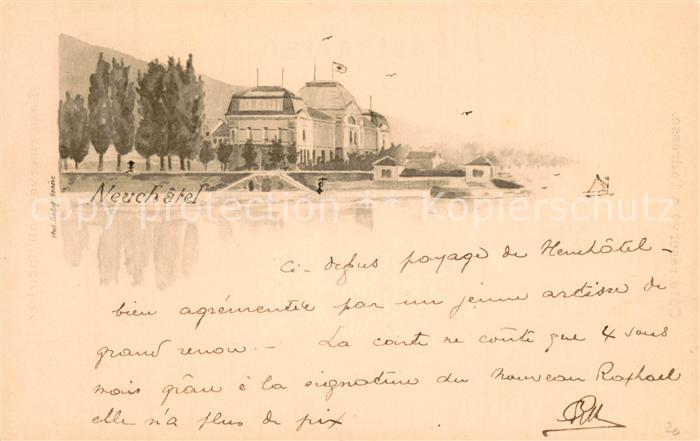 Neuchâtel
copy protection © Kopierschutz
Ci-dessus paysage de Neuchâtel -
bien agrémentée par un jeune artiste de
grand renom. - La carte ne coûte que 4 sous
mais grâce à la signature du nouveau Raphael
elle n'a plus de prix
20